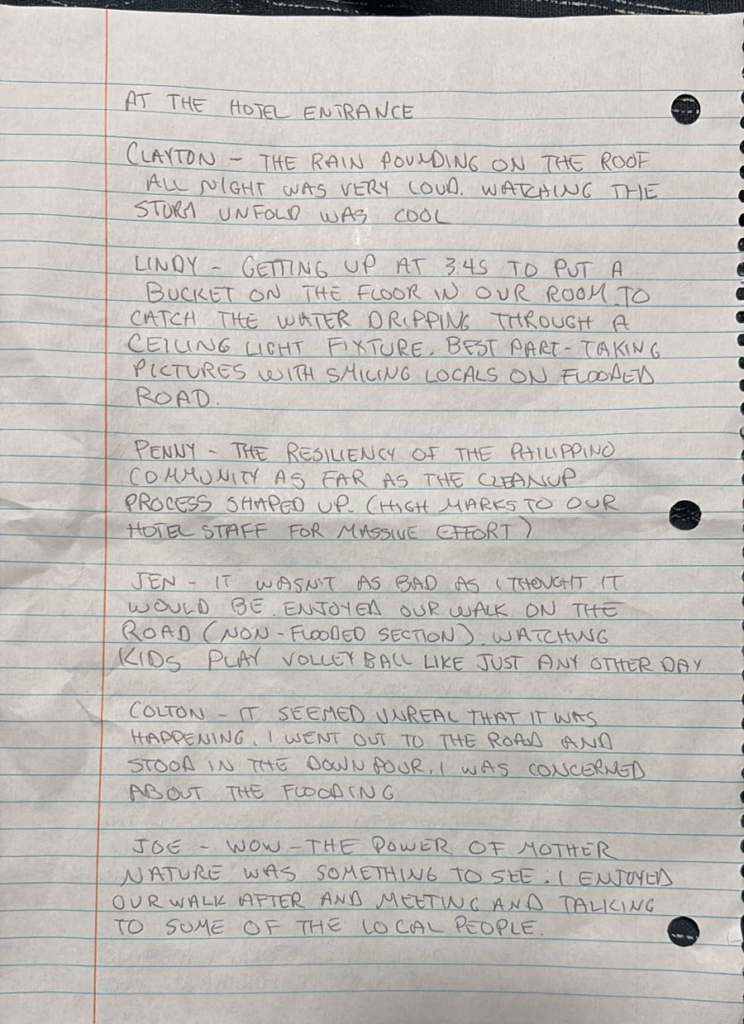 AT THE HOTEL ENTRANCE
CLAYTON - THE RAIN POUNDING ON THE ROOF
ALL NIGHT WAS VERY LOUD. WATCHING THE
STORM UNFOLD WAS COOL
LINDY - GETTING UP AT 3:45 TO PUT A
BUCKET ON THE FLOOR IN OUR ROOM TO
CATCH THE WATER DRIPPING THROUGH A
CEILING LIGHT FIXTURE. BEST PART - TAKING
PICTURES WITH SMILING LOCALS ON FLOODED
ROAD.
PENNY - THE RESILIENCY OF THE PHILIPPINO
COMMUNITY AS FAR AS THE CLEANUP
PROCESS SHAPED UP. (HIGH MARKS TO OUR
HOTEL STAFF FOR MASSIVE EFFORT)
JEN - IT WASN'T AS BAD AS I THOUGHT IT
WOULD BE. ENJOYED OUR WALK ON THE
ROAD (NON-FLOODED SECTION). WATCHING
KIDS PLAY VOLLEYBALL LIKE JUST ANY OTHER DAY
COLTON - IT SEEMED UNREAL THAT IT WAS
HAPPENING. I WENT OUT TO THE ROAD AND
STOOD IN THE DOWNPOUR. I WAS CONCERNED
ABOUT THE FLOODING
JOE - WOW - THE POWER OF MOTHER
NATURE WAS SOMETHING TO SEE. I ENJOYED
OUR WALK AFTER AND MEETING AND TALKING
TO SOME OF THE LOCAL PEOPLE.